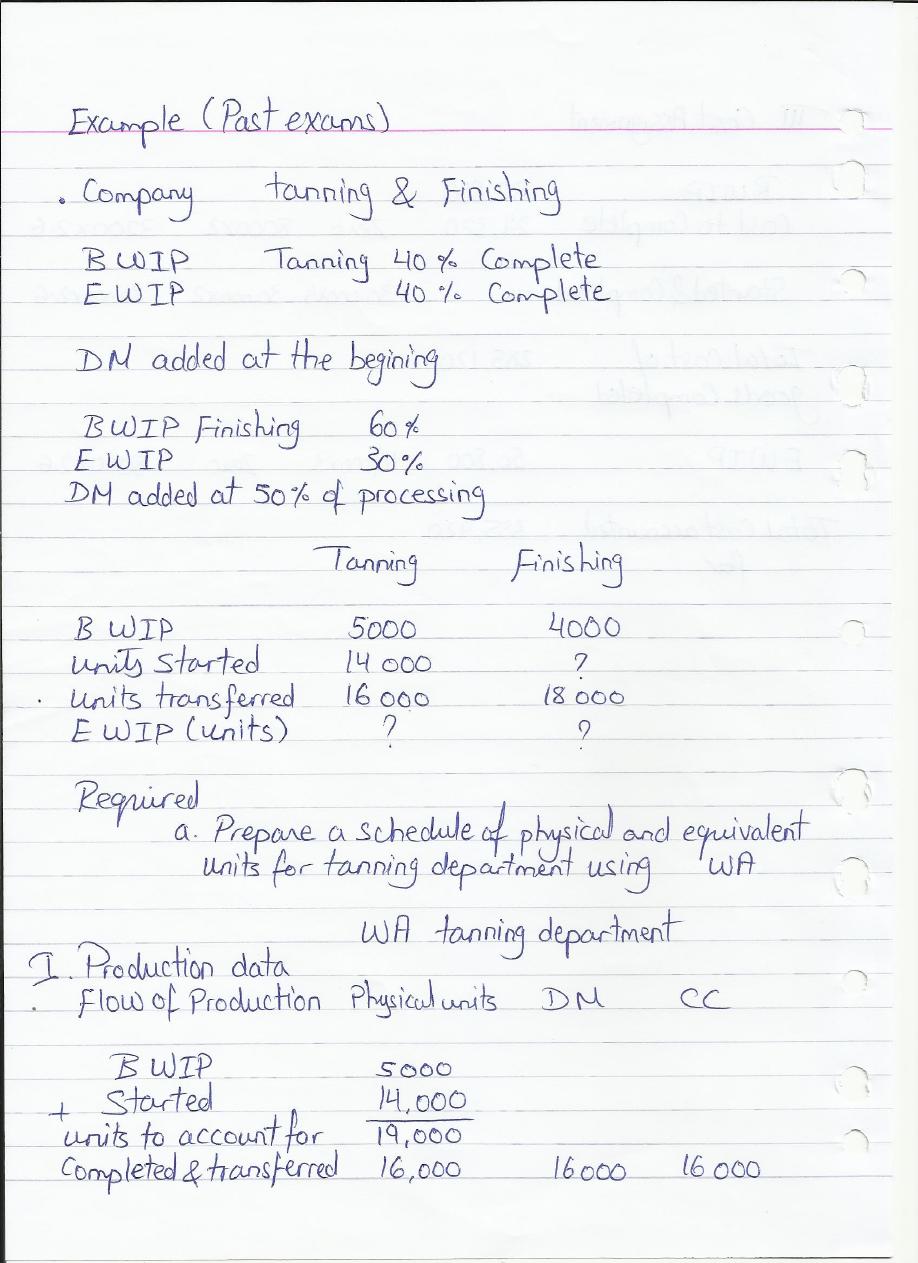 Example (Past exams)
. Company tanning & Finishing
B WIP Tanning 40 % Complete
E WIP 40 % Complete
DM added at the begining
B WIP Finishing 60 %
E WIP 30 %
DM added at 50 % of processing
Tanning Finishing
B WIP 5000 4000
units started 14 000 ?
. units transferred 16 000 18 000
E WIP (units) ? ?
Required
a. Prepare a schedule of physical and equivalent
units for tanning department using WA
WA tanning department
I. Production data
. Flow of Production Physical units DM CC
B WIP 5000
+ Started 14,000
units to account for 19,000
Completed & transferred 16,000 16 000 16 000